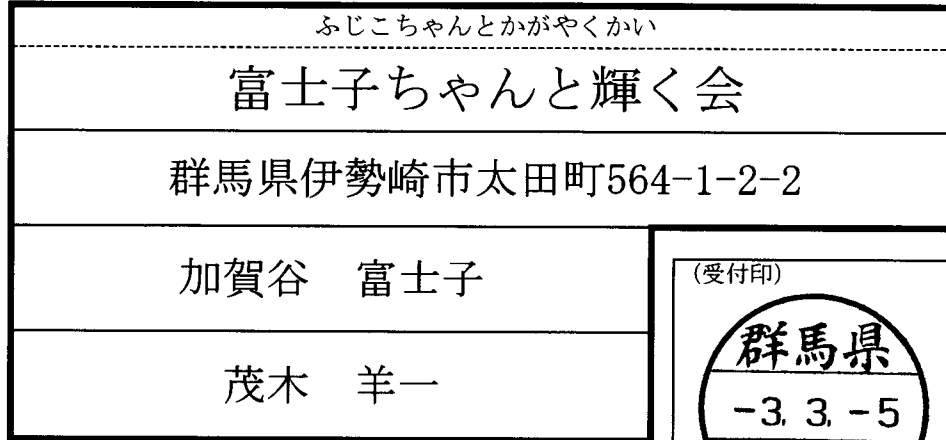 ふじこちゃんとかがやくかい
富士子ちゃんと輝く会
群馬県伊勢崎市太田町564-1-2-2
加賀谷　富士子
(受付印)
群馬県
茂木　羊一
-3. 3. -5